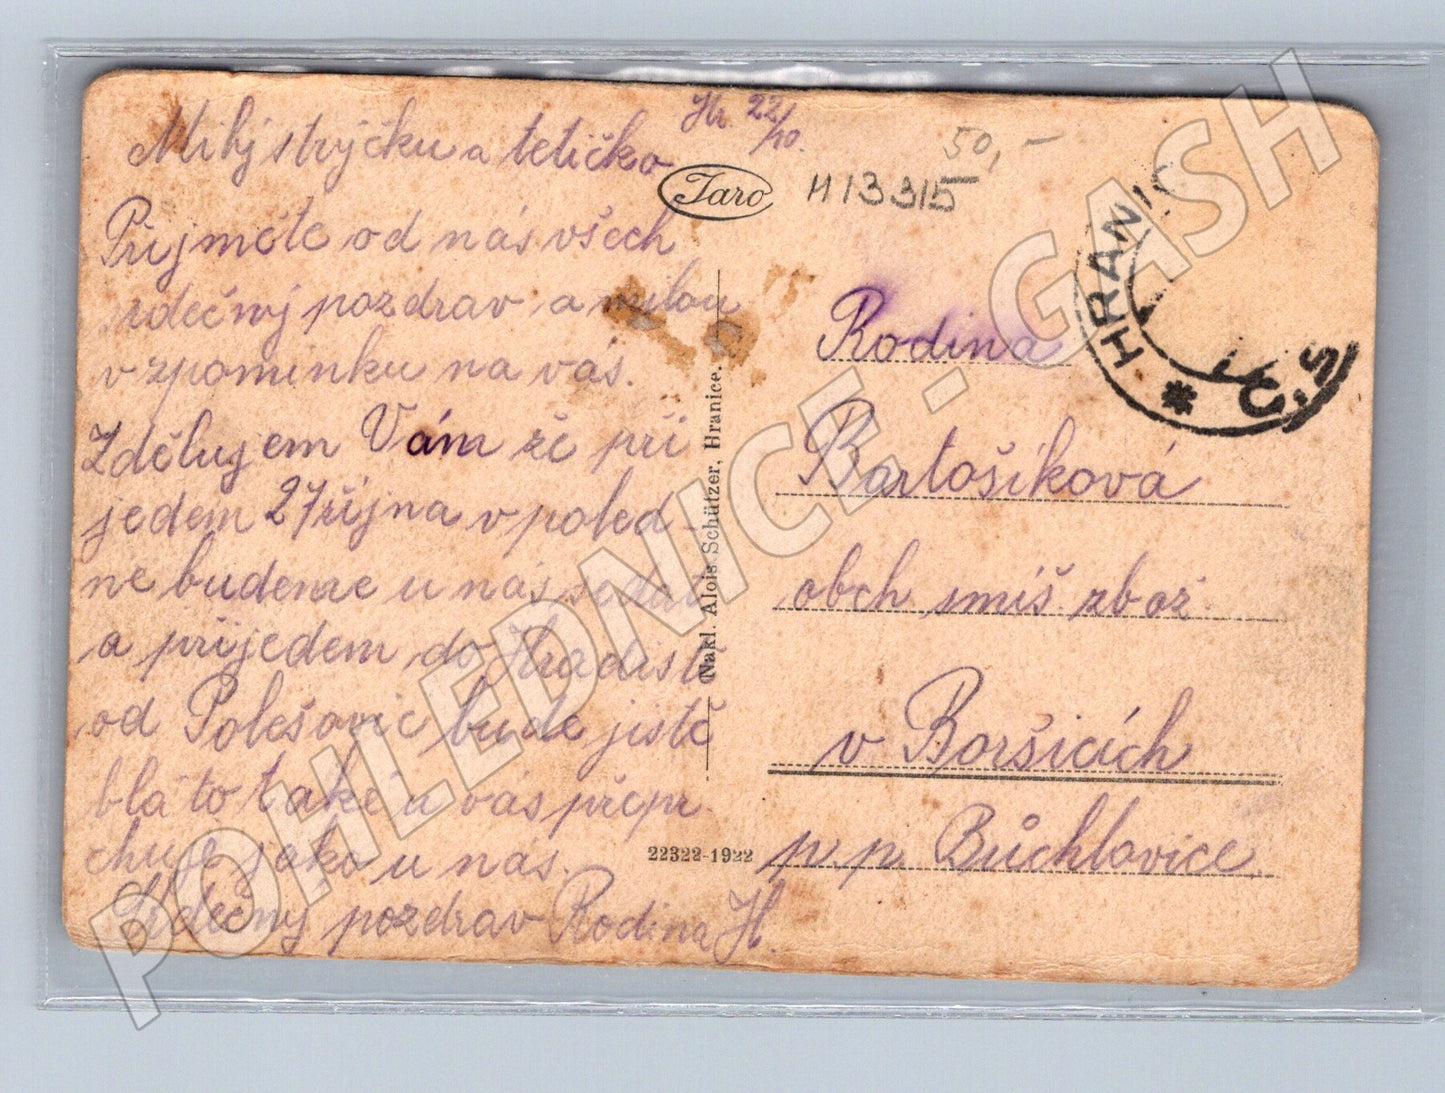 Hr. 22/10.
Milý strýčku a tetičko
Přijměte od nás všech
srdečný pozdrav a milou
v zpomínku na vás.
Zdělujem Vám že při
jedem 27 října v poled-
ne budeme u nás
a přijedem do Hradiště
od Polešovic bude jistě
blá to také u vás přepr
chuje jako u nás.
Srdečný pozdrav Rodina H.
Jaro
H13315
50,-
HRANIC
* Č.S
Nakl. Alois Schützer, Hranice.
22322-1922
Rodina
Bartošíková
obch smíš zbož
v Boršicích
p. p. Bůchlovice
POHLEDNICE - GASH